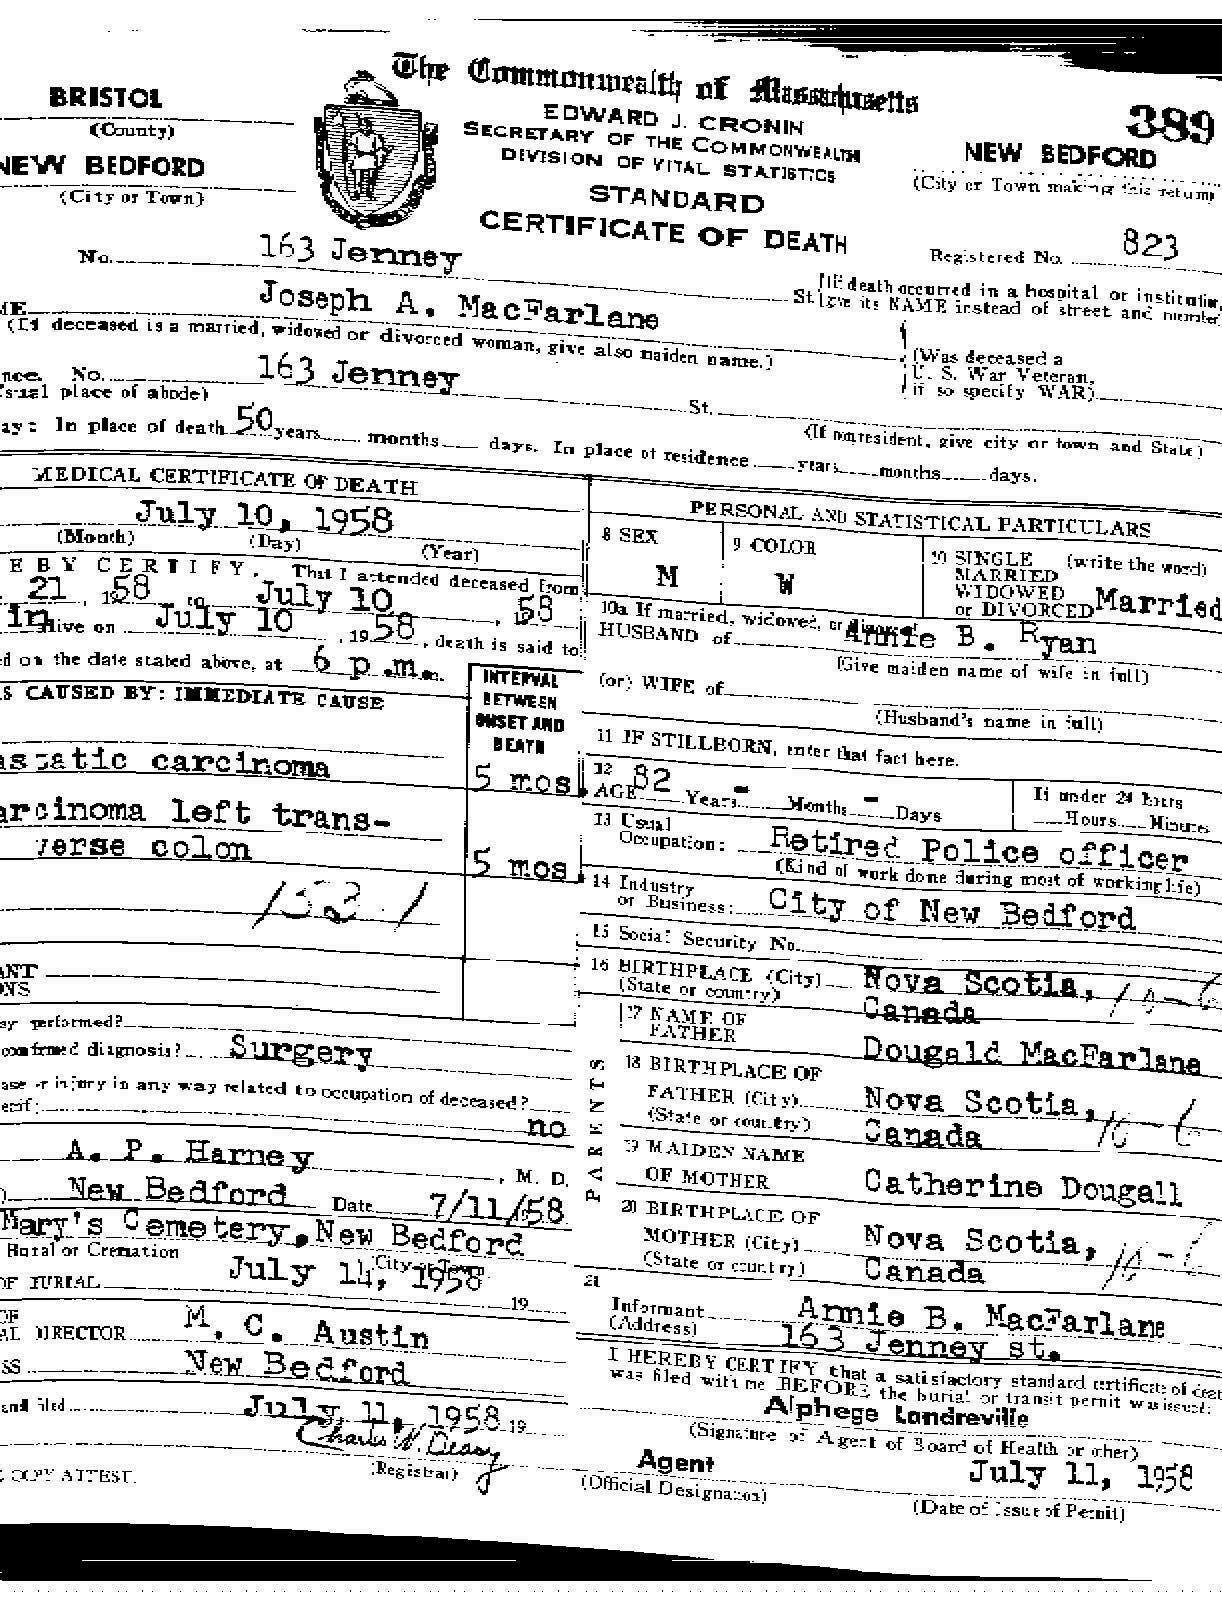 The Commonwealth of Massachusetts
389
BRISTOL
(County)
NEW BEDFORD
(City or Town)
EDWARD J. CRONIN
SECRETARY OF THE COMMONWEALTH
DIVISION OF VITAL STATISTICS
STANDARD
CERTIFICATE OF DEATH
NEW BEDFORD
(City or Town making this return)
Registered No. 823
No. 163 Jenney
St. (If death occurred in a hospital or institution,
give its NAME instead of street and number)
ME Joseph A. MacFarlane
(If deceased is a married, widowed or divorced woman, give also maiden name.)
(Was deceased a
U. S. War Veteran,
if so specify WAR)
nce. No. 163 Jenney St.
sual place of abode)
(If nonresident, give city or town and State)
ay: In place of death 50 years months days. In place of residence years months days.
MEDICAL CERTIFICATE OF DEATH
July 10, 1958
(Month) (Day) (Year)
EBY CERTIFY, That I attended deceased from
21, 1958 to July 10, 58
in alive on July 10, 1958, death is said to
d on the date stated above, at 6 p.m.
S CAUSED BY: IMMEDIATE CAUSE
INTERVAL
BETWEEN
ONSET AND
DEATH
astatic carcinoma 5 mos.
arcinoma left trans-
verse colon 5 mos
153.1
ANT
ONS
sy performed?
confirmed diagnosis? Surgery
ase or injury in any way related to occupation of deceased?
ecify: no
A. P. Harney, M. D.
New Bedford Date 7/11/58
Mary's Cemetery, New Bedford
Burial or Cremation (City or Town)
OF BURIAL July 14, 1958 19
OF
AL DIRECTOR M. C. Austin
SS New Bedford
and filed July 11, 1958 19
Charles W. Deasy
(Registrar)
COPY ATTEST.
PERSONAL AND STATISTICAL PARTICULARS
8 SEX M
9 COLOR W
10 SINGLE (write the word)
MARRIED
WIDOWED
or DIVORCED Married
10a If married, widowed, or divorced
HUSBAND of Annie B. Ryan
(Give maiden name of wife in full)
(or) WIFE of
(Husband's name in full)
11 IF STILLBORN, enter that fact here.
12
AGE 82 Years - Months - Days
If under 24 hours
Hours Minutes
13 Usual
Occupation: Retired Police officer
(Kind of work done during most of working life)
14 Industry
or Business: City of New Bedford
15 Social Security No.
16 BIRTHPLACE (City) Nova Scotia, 10-6
(State or country) Canada
PARENTS
17 NAME OF
FATHER Dougald MacFarlane
18 BIRTHPLACE OF
FATHER (City) Nova Scotia,
(State or country) Canada 10-6
19 MAIDEN NAME
OF MOTHER Catherine Dougall
20 BIRTHPLACE OF
MOTHER (City) Nova Scotia,
(State or country) Canada 10-6
21
Informant Annie B. MacFarlane
(Address) 163 Jenney st.
I HEREBY CERTIFY that a satisfactory standard certificate of deat
was filed with me BEFORE the burial or transit permit was issued:
Alphege Landreville
(Signature of Agent of Board of Health or other)
Agent July 11, 1958
(Official Designation) (Date of Issue of Permit)